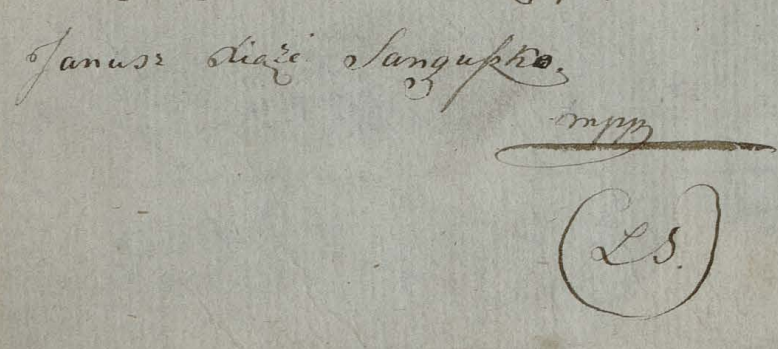 Janusz Xiąże Sanguszko.
mpp
L S.